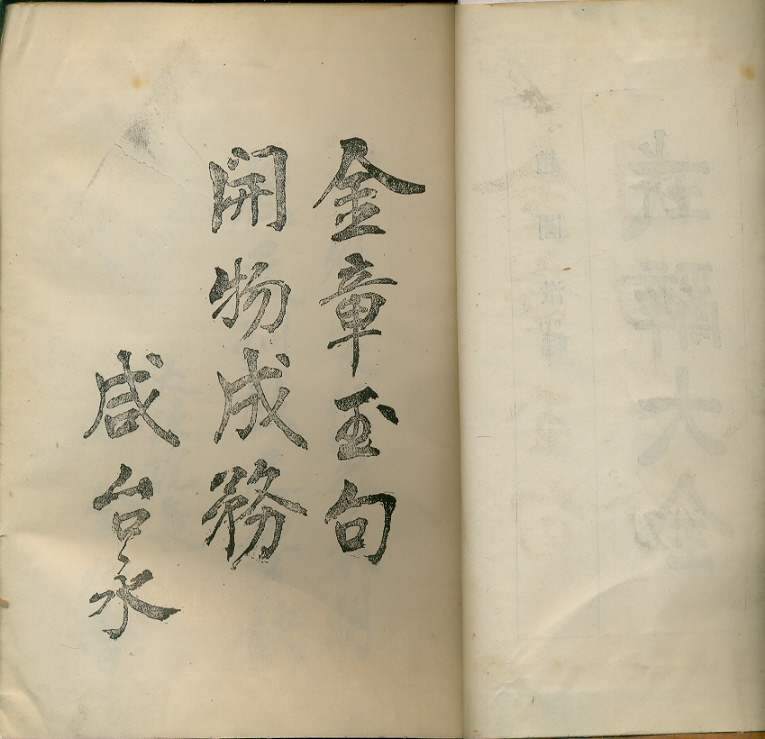 金章玉句
開物成務
咸台永